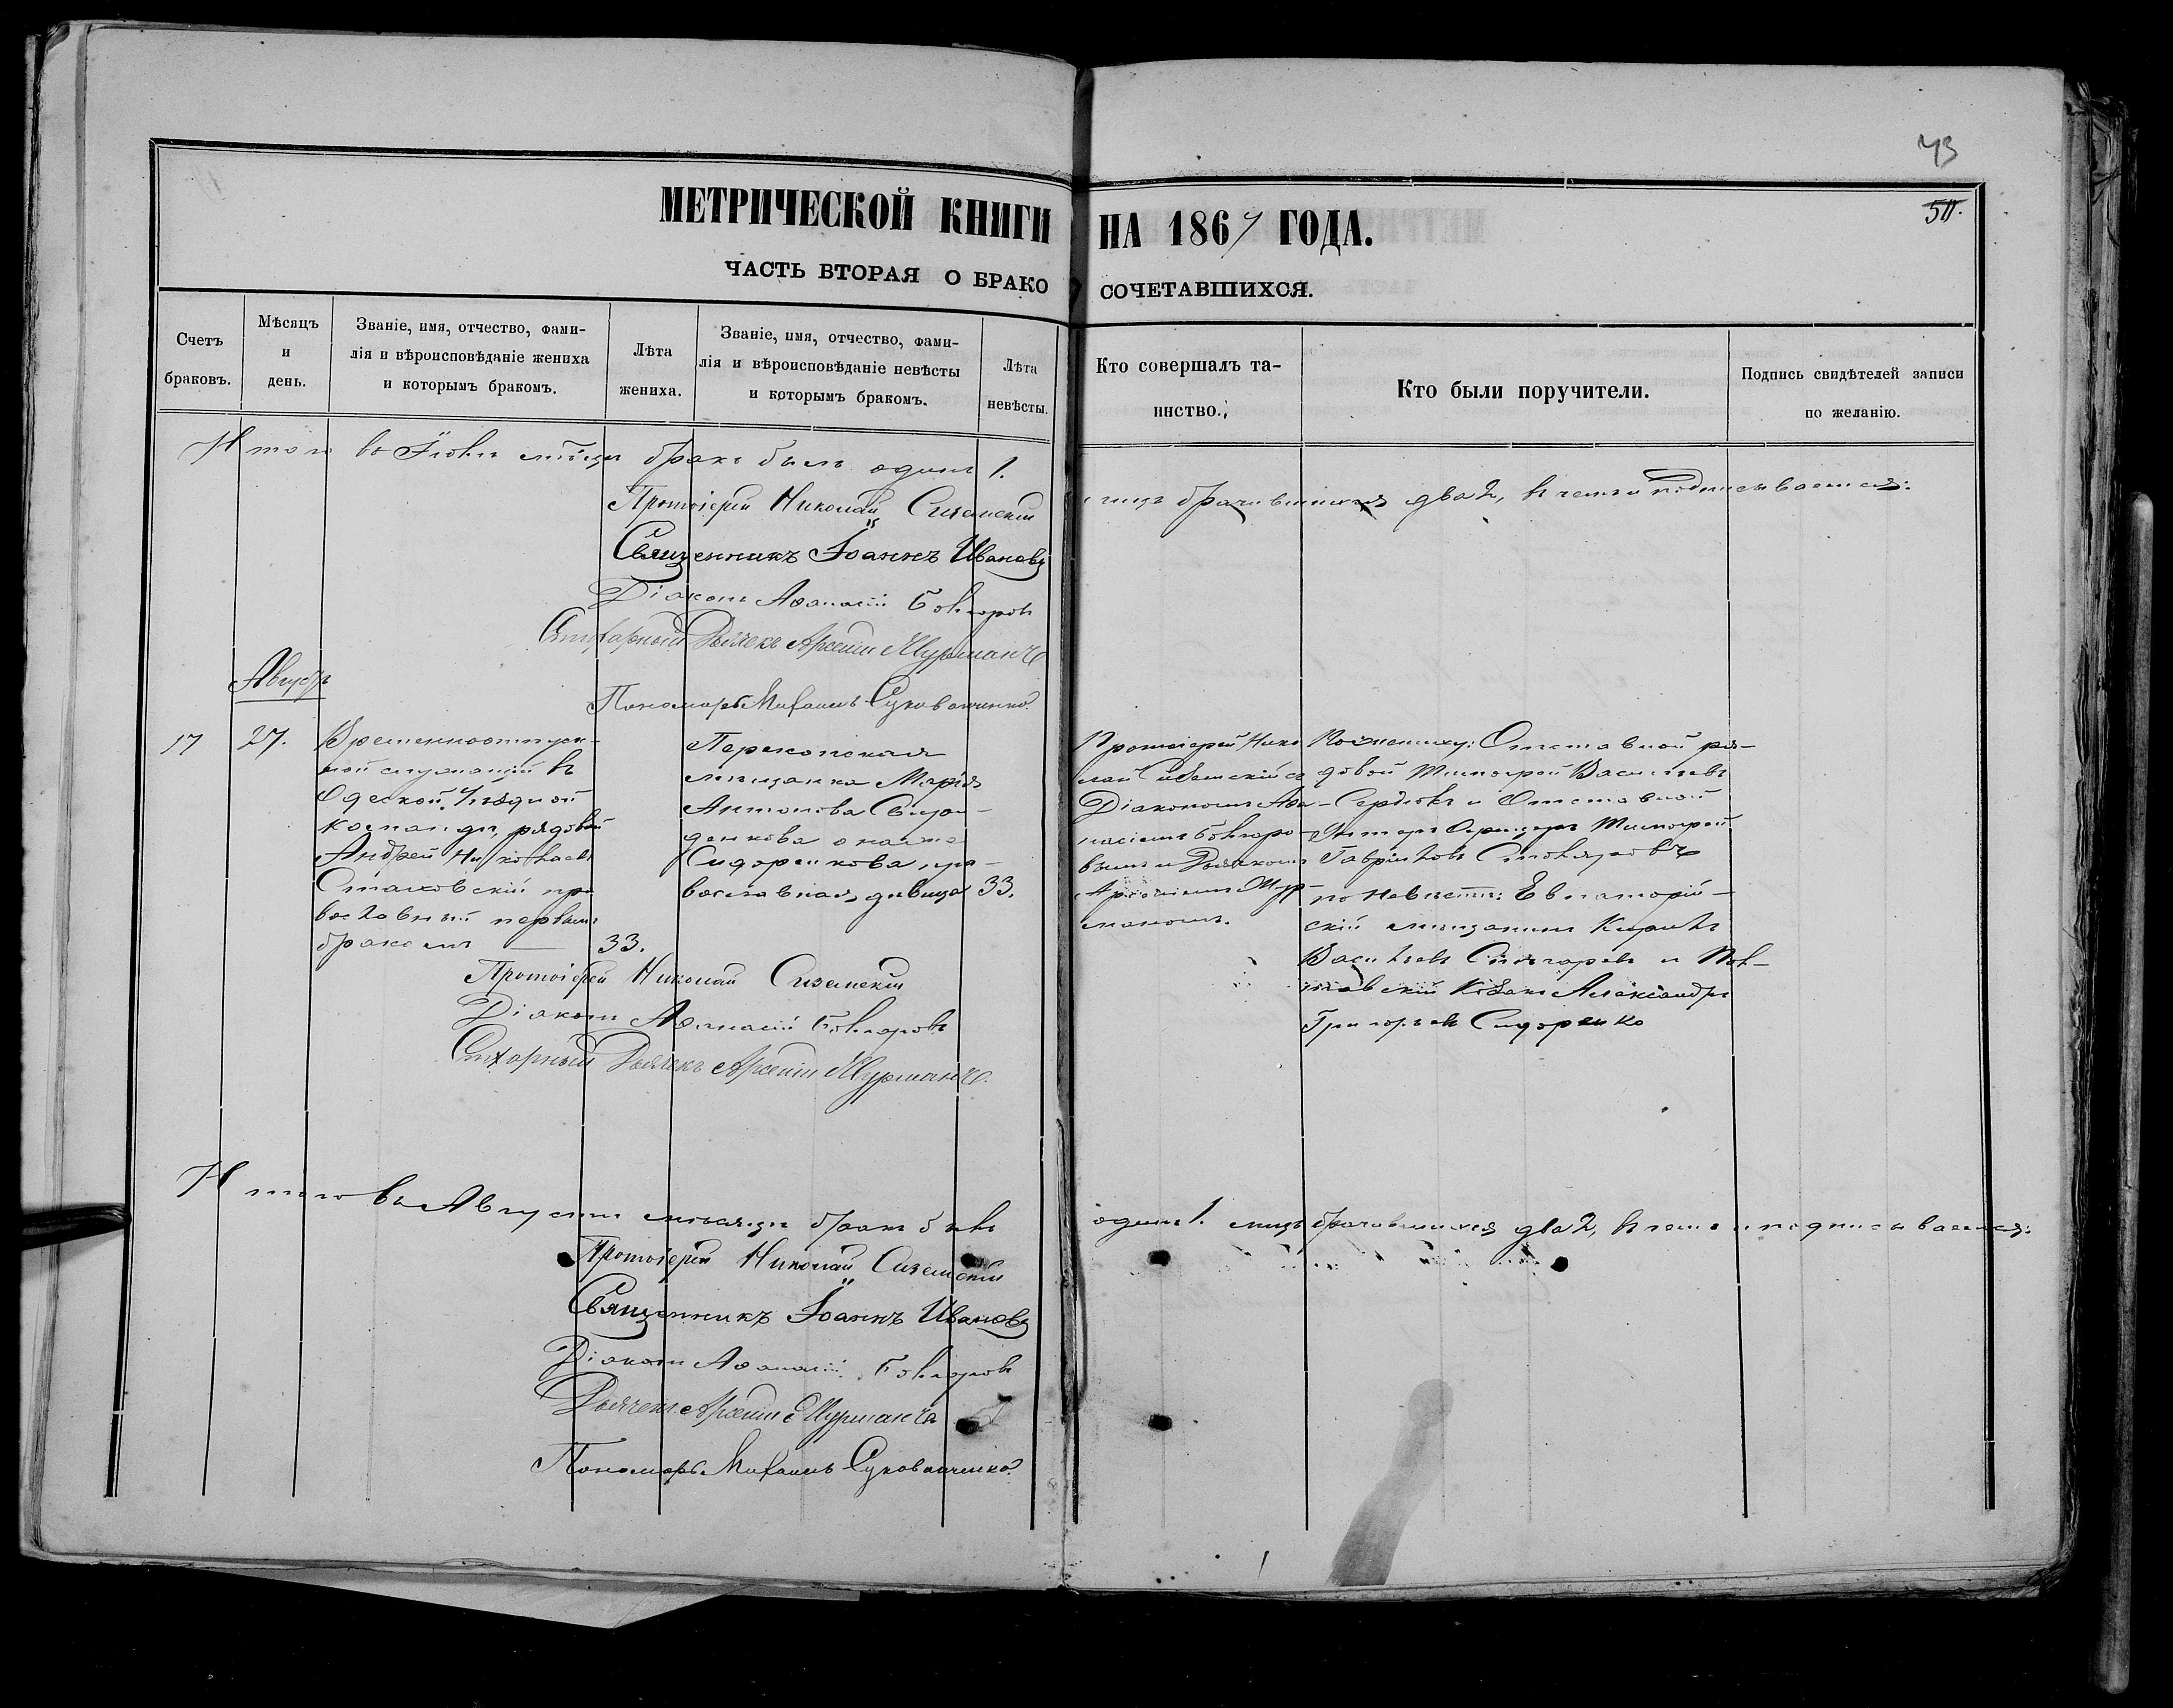 43
50.
МЕТРИЧЕСКОЙ КНИГИ НА 1867 ГОДА.
ЧАСТЬ ВТОРАЯ О БРАКОСОЧЕТАВШИХСЯ.
Счетъ браковъ.
Мѣсяцъ и день.
Званіе, имя, отчество, фами-
лія и вѣроисповѣданіе жениха
и которымъ бракомъ.
Лѣта жениха.
Званіе, имя, отчество, фами-
лія и вѣроисповѣданіе невѣсты
и которымъ бракомъ.
Лѣта невѣсты.
Кто совершалъ та-
инство.
Кто были поручители.
Подпись свидѣтелей записи
по желанію.
Итого въ мѣсяцѣ бракъ былъ одинъ 1. лицъ брачившихся два 2, въ чемъ и подписываемся:
Протоіерей Николай
Священникъ Іоаннъ Ивановъ
Діаконъ Аѳанасій Болгаровъ
Дьячекъ Арсеній Мурманъ
Пономарь Михаилъ
Августъ
17
27.
Временноотпуск-
ной служащій въ
Одеской Уѣздной
командѣ, рядовой
Андрей Николаевъ
Сталковскій пра-
вославный первымъ
бракомъ — 33.
Перекопская
мѣщанка Марія
Антонова
она же
Сидоренкова пра-
вославная, дѣвица 33.
Протоіерей Нико-
лай съ
Діакономъ Аѳа-
насіемъ Болгаро-
вымъ и Дьячкомъ
Арсеніемъ Мур-
маномъ.
По женихѣ: Отставной ря-
довой Тимофей Васильевъ
Сердюкъ и Отставной
Унтеръ Офицеръ Тимофей
Гавріиловъ
по невѣстѣ: Евпаторій-
скій мѣщанинъ Кирилъ
Васильевъ и Пол-
тавскій Козакъ Александръ
Григорьевъ Сидоренко
Протоіерей Николай
Діаконъ Аѳанасій Болгаровъ
Дьячекъ Арсеній Мурманъ
Итого въ Августѣ мѣсяцѣ бракъ былъ одинъ 1. лицъ брачившихся два 2, въ чемъ и подписываемся:
Протоіерей Николай
Священникъ Іоаннъ Ивановъ
Діаконъ Аѳанасій Болгаровъ
Дьячекъ Арсеній Мурманъ
Пономарь Михаилъ